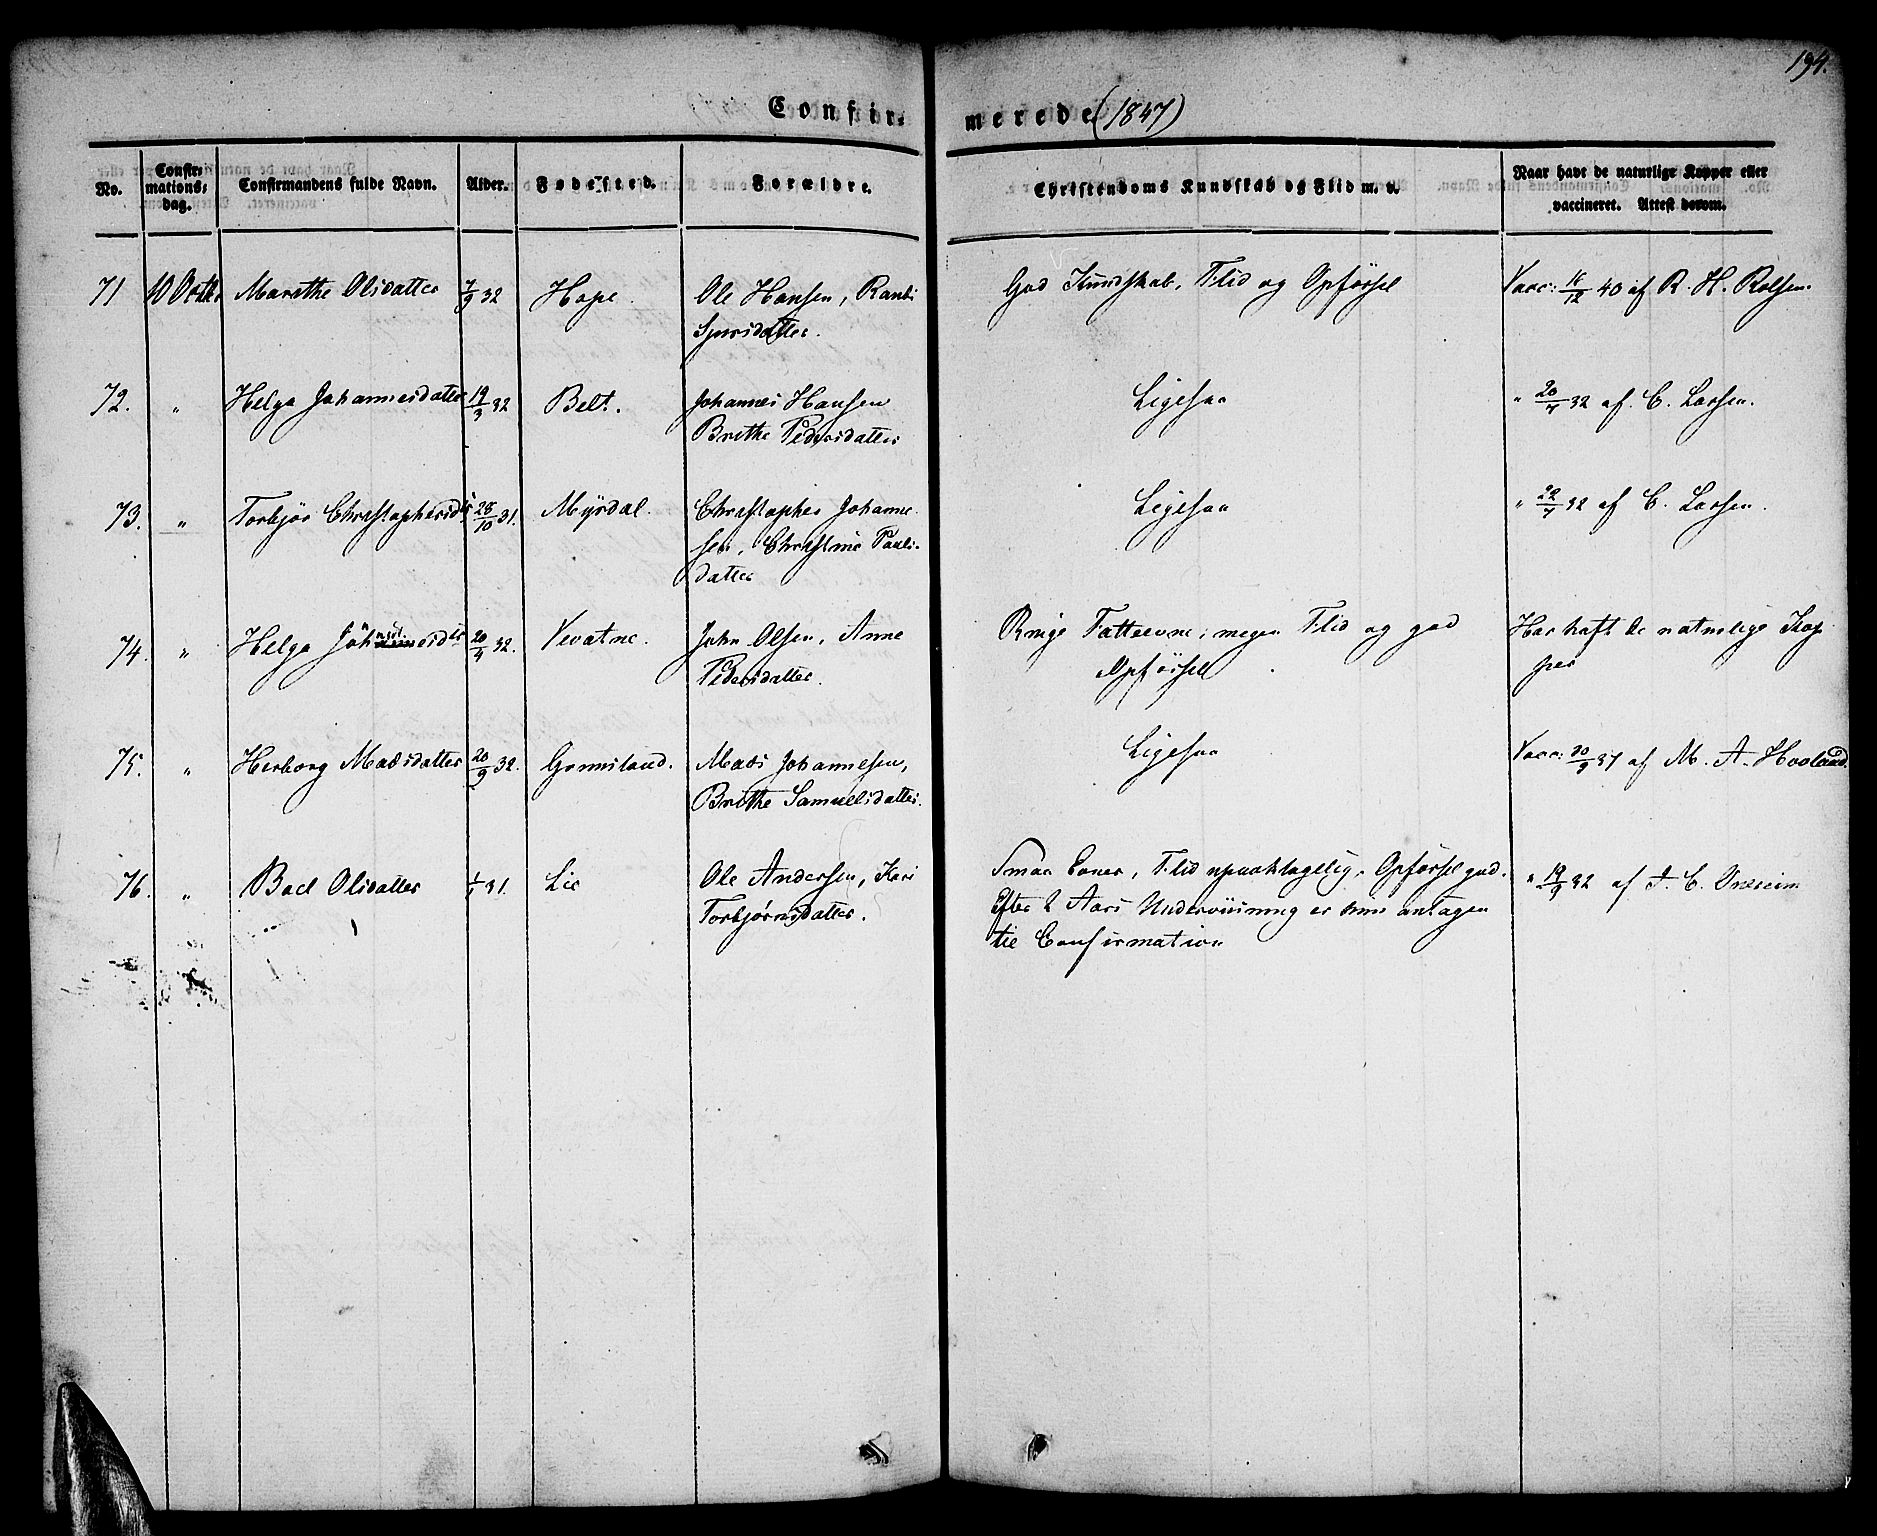 194.
Confir-merede (1847)
No. Confir-mations-dag. Confirmandens fulde Navn. Alder. Fødested. Forældre. Christendoms Kundskab og Flid m. v. Naar havt de naturlige Kopper eller vaccineret. Attest derom.
71 10 Octbr Marethe Olsdatter 7/9 32 Hope. Ole Hansen, Randi God Kundskab, Flid og Opførsel Vacc: 16/12 40 af R. H. Rolfsen.
Sjursdatter.
72. " Helga Johannesdatter 19/3 32 Belt. Johannes Hansen Ligesaa " 20/7 32 af C. Larsen.
Brithe Pedersdatter
73. " Torbjør Christophersdr 28/10 31. Myrdal. Christopher Johanne- Ligesaa " 22/7 32 af C. Larsen.
sen, Christine Pauls-
datter
74. " Helga 20/4 32. Vevatne. John Olsen, Anne Ringe Fatteevne; megen Flid og god Har haft de naturlige Kop
Pedersdatter. Opførsel per
75. " Herborg Madsdatter 20/9 32. Gunnsland. Mads Johannesen, Ligesaa Vacc: 30/9 37 af M. A. Hovland.
Brithe Samuelsdatter.
76. " Boel Olsdatter 1/1 31. Lie Ole Andersen, Kari Smaa Evner, Flid upaaklagelig, Opførsel god. " 19/9 32 af
Torbjørnsdatter. Efter 2 Aars Underviisning er hun antagen
til Confirmation